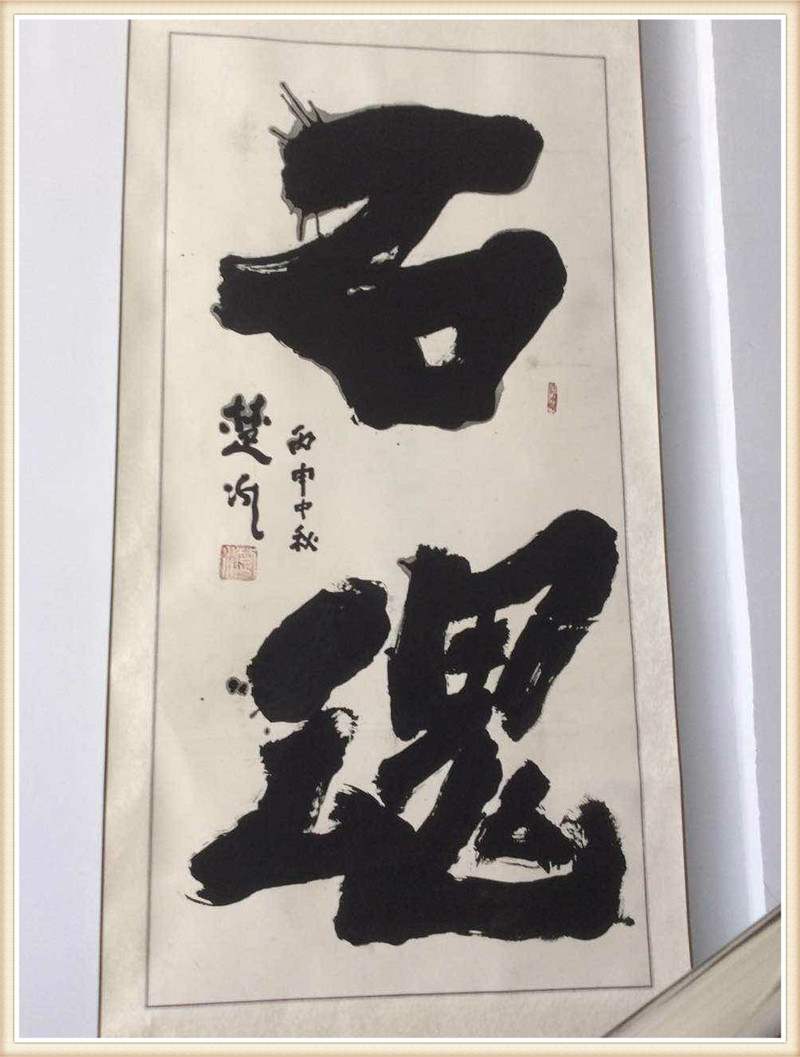 石魂
丙申中秋
楚